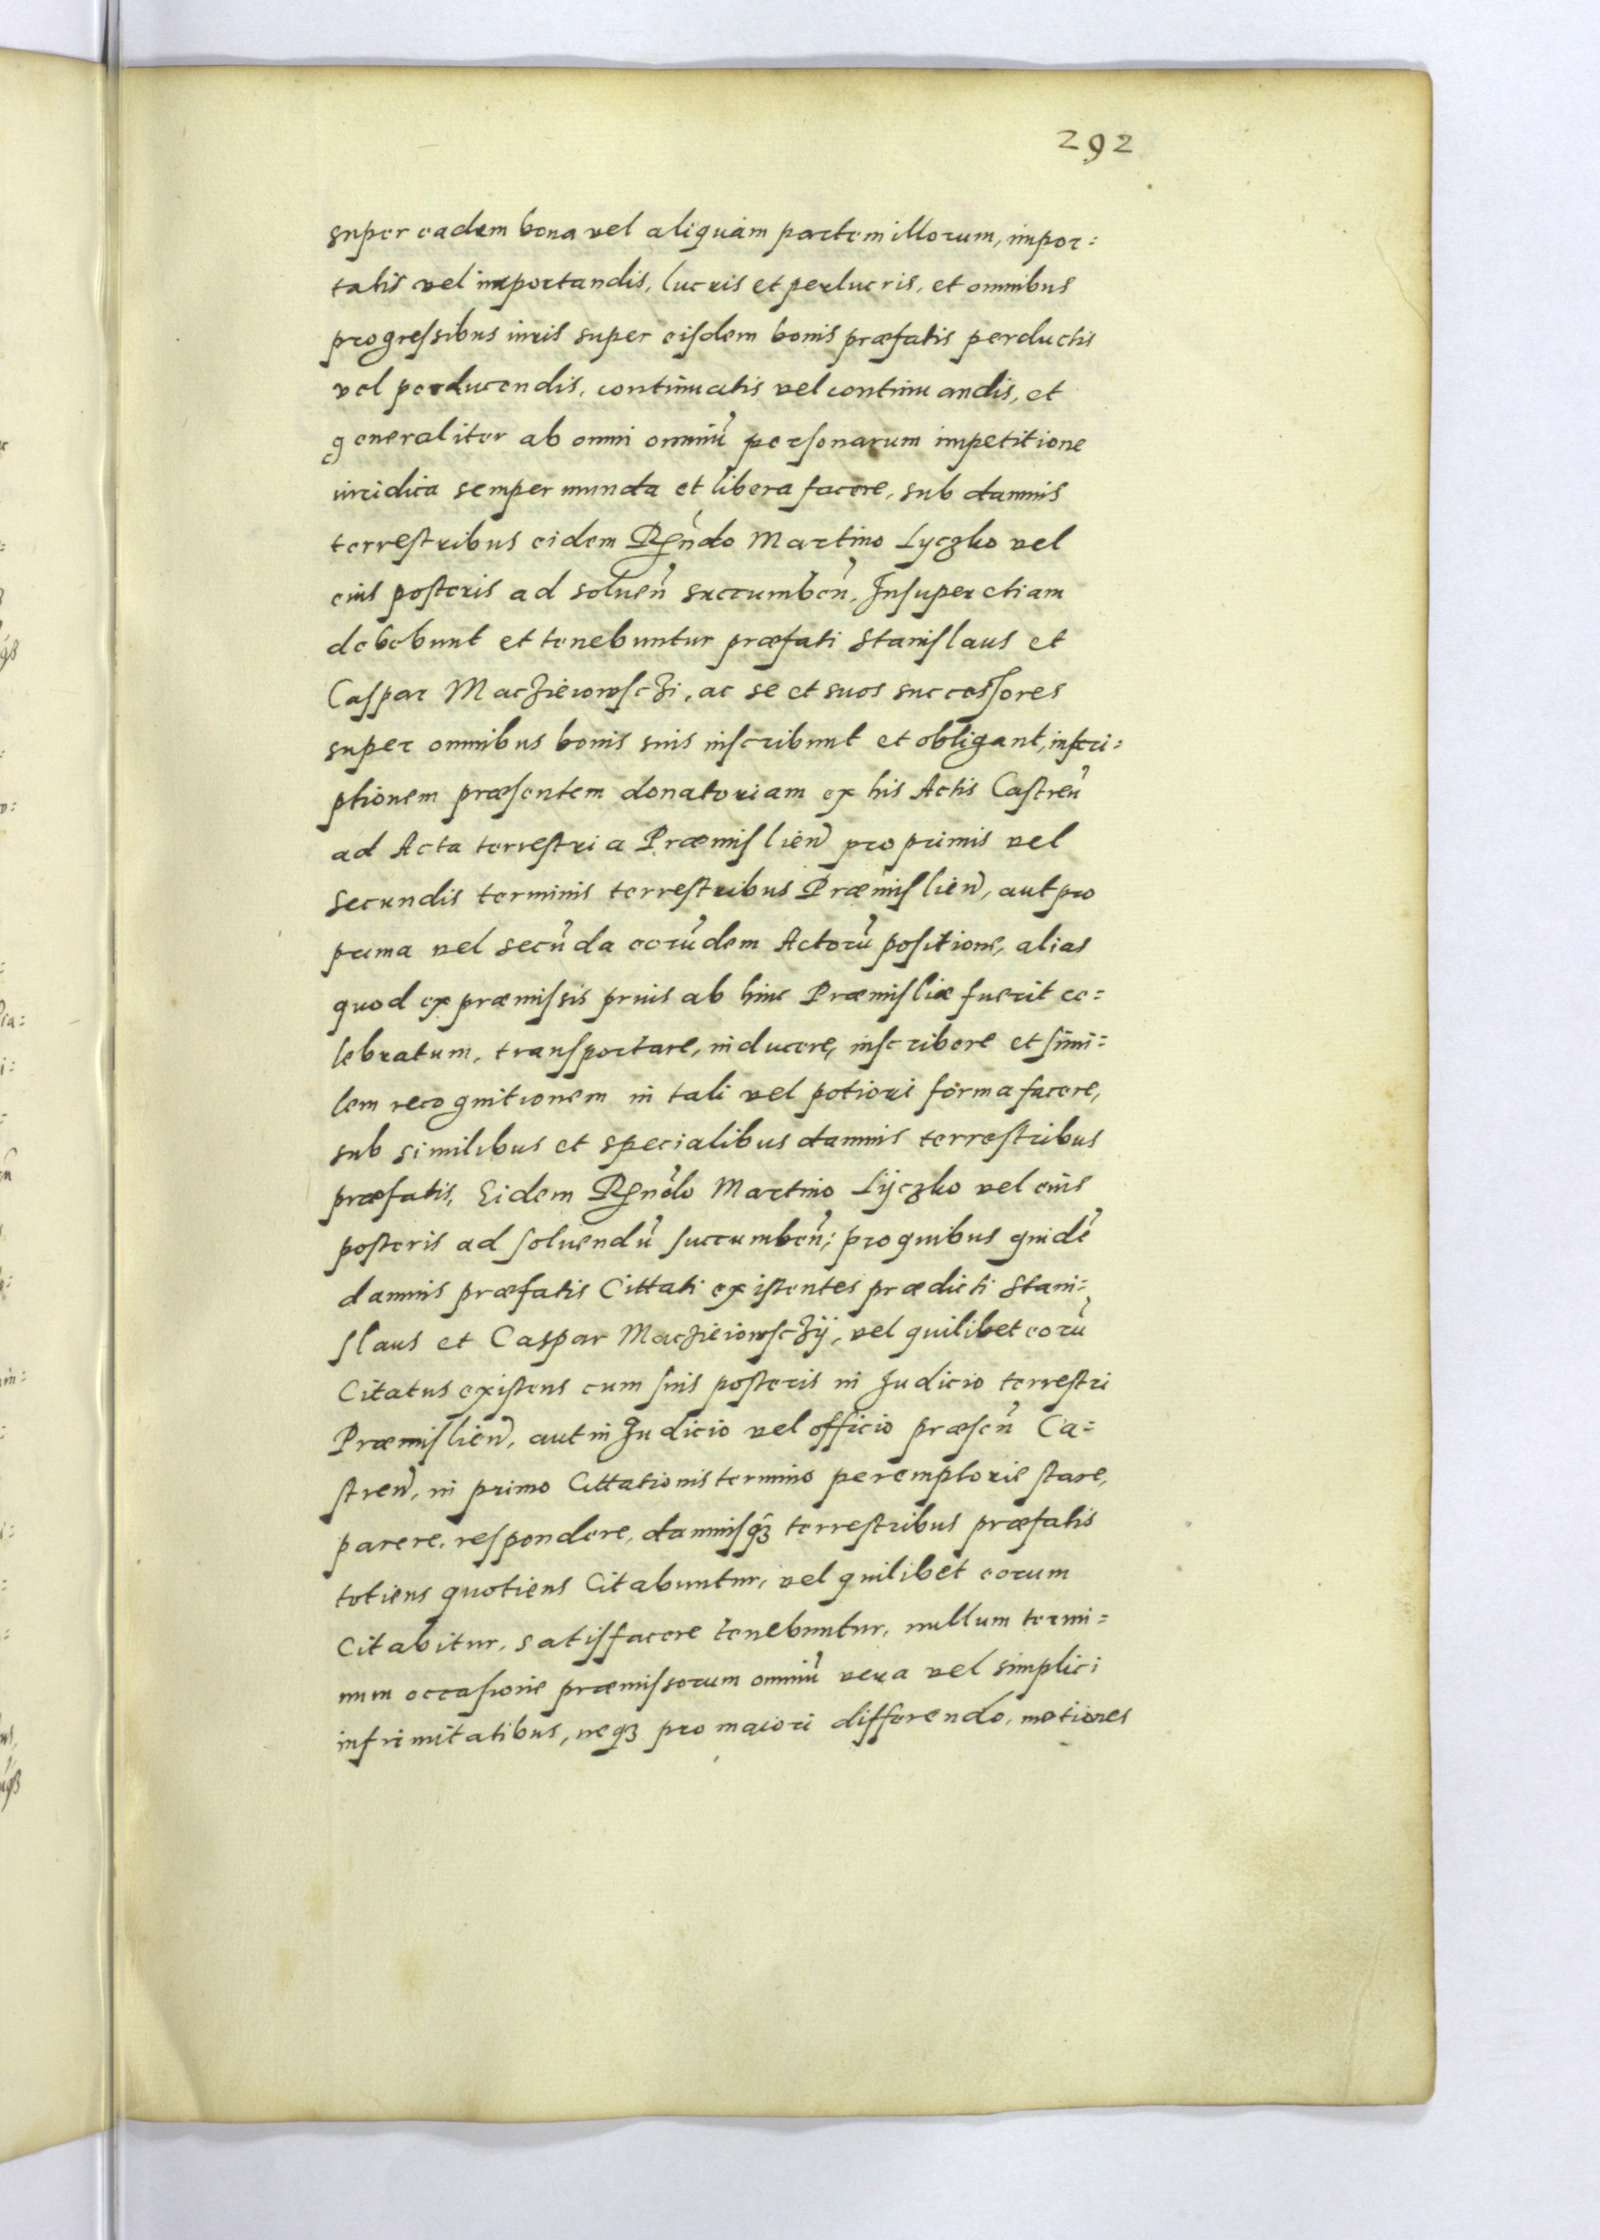 292
super eadem bona vel aliquam partem illorum, impor:
tatis vel importandis, lucris et perlucris, et omnibus
progressibus iuris super eisdem bonis præfatis perductis
vel perducendis, continuatis vel continuandis, et
generaliter ab omni omniũ personarum impetitione
iuridica semper munda et libera facere, sub damnis
terrestribus eidem Rñdo Martino Lyczko vel
eius posteris ad soluen̉ succumben̉, Insuper etiam
debebunt et tenebuntur præfati Stanislaus et
Caspar Maczieiowsczi, ac se et suos successores
super omnibus bonis suis inscribunt et obligant, inscri:
ptionem præsentem donatoriam ex his Actis Castren̉
ad Acta terrestria Præmislien̉ pro primis vel
secundis terminis terrestribus Præmislien̉, aut pro
prima vel secũda eorũdem Actorũ positione, alias
quod ex præmissis prius ab hinc Præmisliæ fuerit ce:
lebratum, transportare, inducere, inscribere et simi:
lem recognitionem in tali vel potiori forma facere,
sub similibus et specialibus damnis terrestribus
præfatis, Eidem Rñdo Martino Lÿczko vel eius
posteris ad soluendũ succumben̉; pro quibus quidẽ
damnis præfatis Cittati existentes prædicti Stani:
slaus et Caspar Maczieiowsczÿ, vel quilibet eorũ
Citatus existens cum suis posteris in Iudicio terrestri
Præmislien̉, aut in Iudicio vel officio præsen̉ Ca:
stren̉, in primo Cittationis termino peremptorie stare,
parere, respondere, damnisq́ȝ terrestribus præfatis
totiens quotiens Citabuntur, vel quilibet eorum
Citabitur, satisfacere tenebuntur, nullum termi:
num occasione præmissorum omniũ vera vel simplici
infirmitatibus, neqȝ pro maiori differendo, motiones